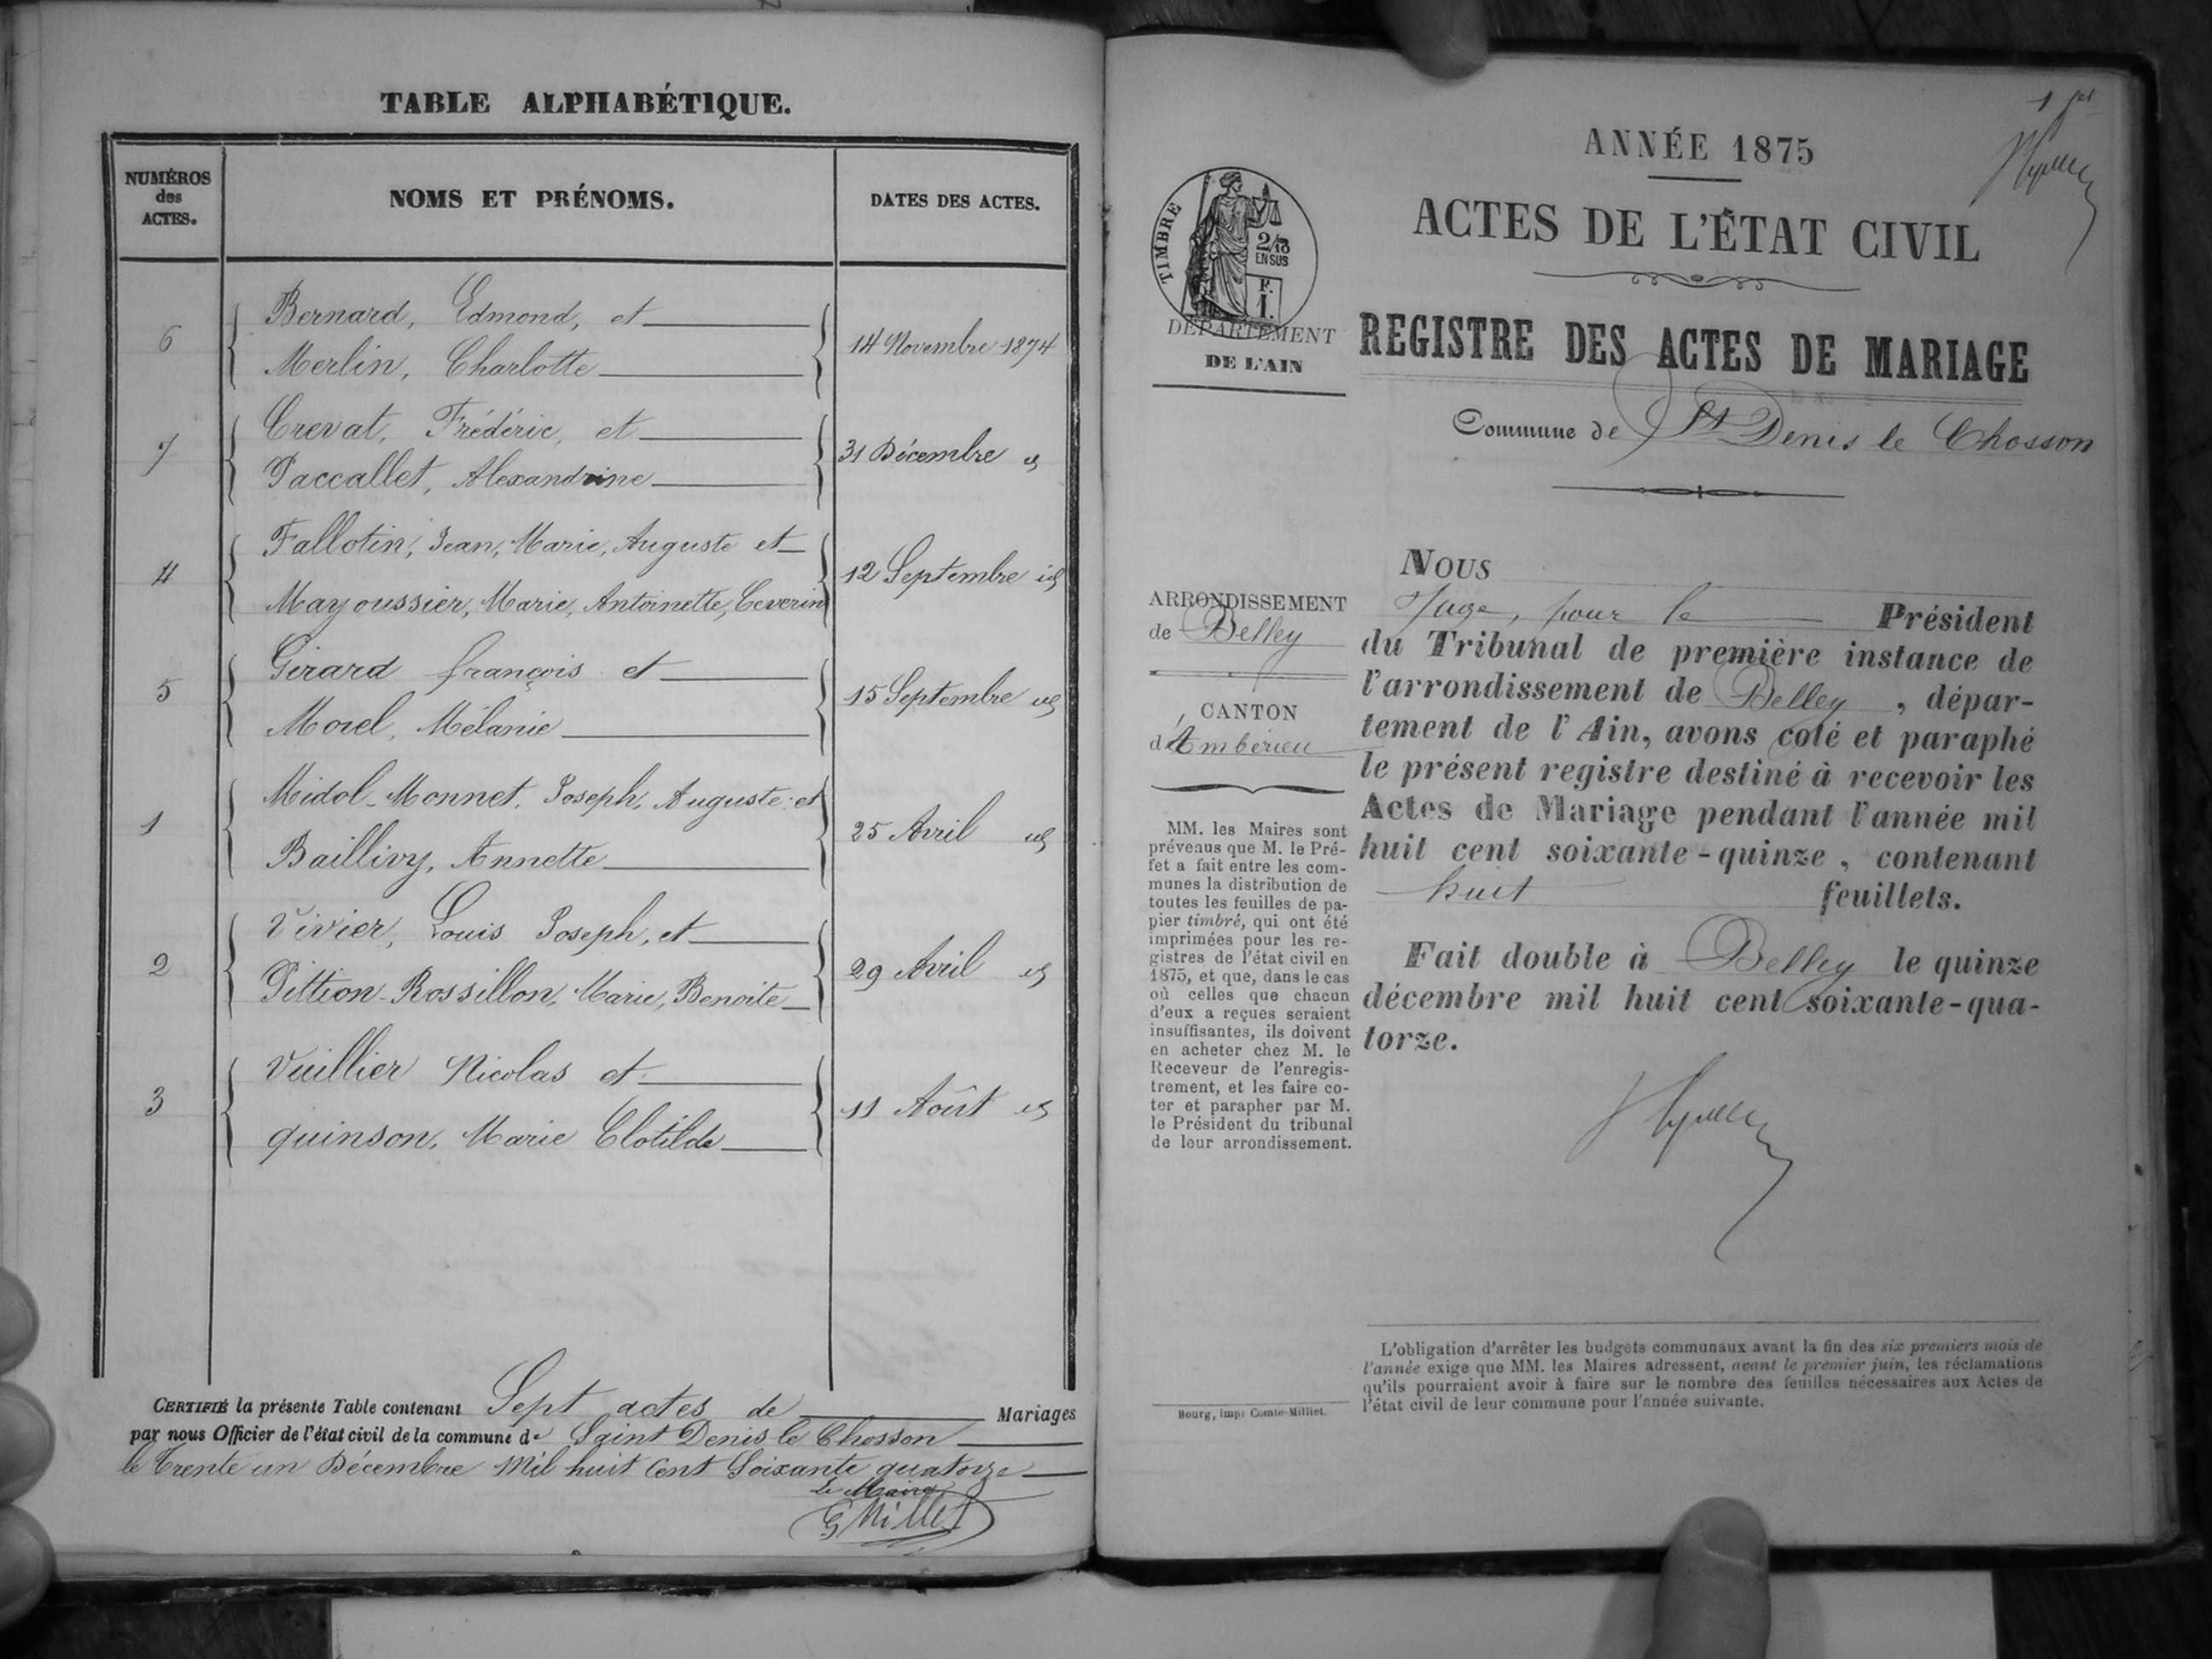 TABLE ALPHABÉTIQUE.
NUMÉROS
des
ACTES.
NOMS ET PRÉNOMS.
DATES DES ACTES.
6
Bernard, Edmond, et
Merlin, Charlotte
14 Novembre 1874
7
Crevat, Frédéric, et
Paccallet, Alexandrine
31 Décembre id
4
Fallotin, Jean, Marie, Auguste et
Mayoussier, Marie, Antoinette, Ceverin
12 Septembre id
5
Girard françois et
Morel, Mélanie
15 Septembre id
1
Midol-Monnet, Joseph, Auguste et
Baillivy, Annette
25 Avril id
2
Vivier, Louis Joseph, et
Pittion-Rossillon, Marie, Benoite
29 Avril id
3
Vuillier Nicolas et
quinson, Marie Clotilde
11 Août id
CERTIFIÉ la présente Table contenant Sept actes de Mariages
par nous Officier de l'état civil de la commune de Saint Denis le Chosson
le Trente un Décembre Mil huit Cent Soixante quatorze
Le Maire
G Millet
1er
ANNÉE 1875
ACTES DE L'ÉTAT CIVIL
TIMBRE
2/10
EN SUS
F.
1.
DÉPARTEMENT
DE L'AIN
REGISTRE DES ACTES DE MARIAGE
Commune de St Denis le Chosson
ARRONDISSEMENT
de Belley
CANTON
d'Ambérieu
MM. les Maires sont
prévenus que M. le Pré-
fet a fait entre les com-
munes la distribution de
toutes les feuilles de pa-
pier timbré, qui ont été
imprimées pour les re-
gistres de l'état civil en
1875, et que, dans le cas
où celles que chacun
d'eux a reçues seraient
insuffisantes, ils doivent
en acheter chez M. le
Receveur de l'enregis-
trement, et les faire co-
ter et parapher par M.
le Président du tribunal
de leur arrondissement.
Bourg, imp. Comte-Milliet.
NOUS
Juge, pour le Président
du Tribunal de première instance de
l'arrondissement de Belley, dépar-
tement de l'Ain, avons coté et paraphé
le présent registre destiné à recevoir les
Actes de Mariage pendant l'année mil
huit cent soixante-quinze, contenant
huit feuillets.
Fait double à Belley le quinze
décembre mil huit cent soixante-qua-
torze.
L'obligation d'arrêter les budgets communaux avant la fin des six premiers mois de
l'année exige que MM. les Maires adressent, avant le premier juin, les réclamations
qu'ils pourraient avoir à faire sur le nombre des feuilles nécessaires aux Actes de
l'état civil de leur commune pour l'année suivante.